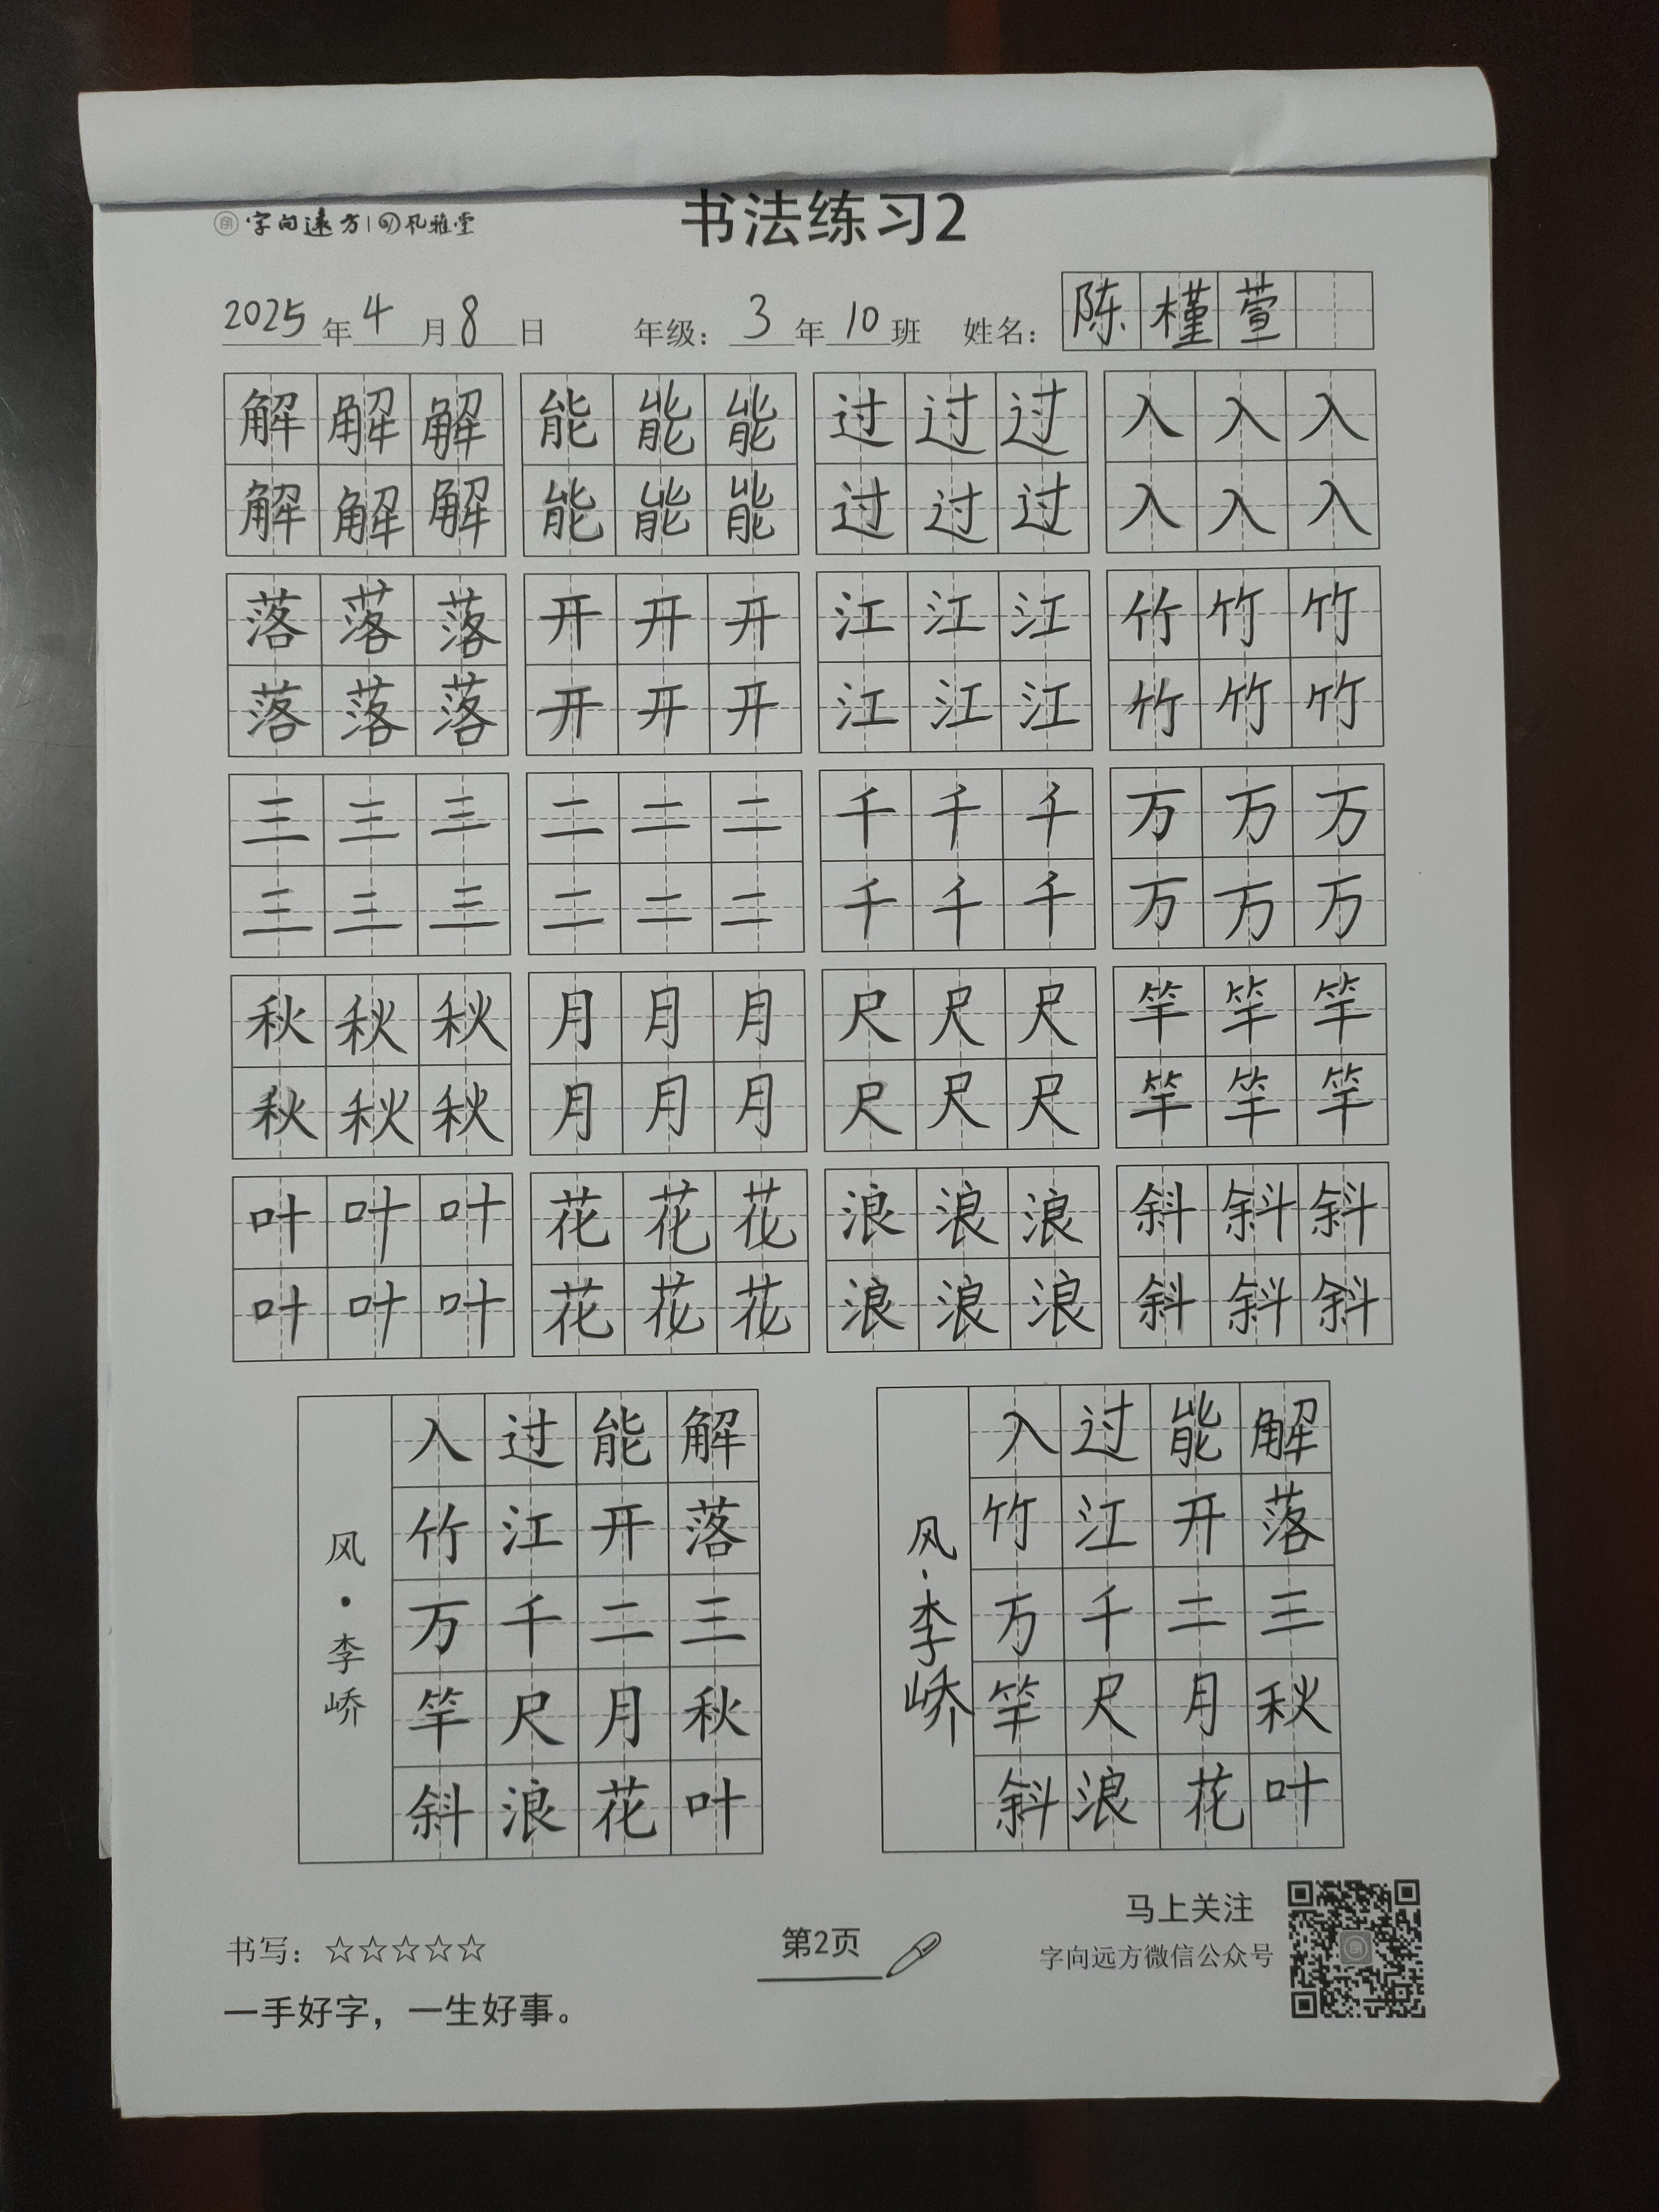 字向远方 | 风雅堂
书法练习2
2025年4月8日 年级：3年10班 姓名：陈槿萱
解解解 能能能 过过过 入入入
解解解 能能能 过过过 入入入
落落落 开开开 江江江 竹竹竹
落落落 开开开 江江江 竹竹竹
三三三 二二二 千千千 万万万
三三三 二二二 千千千 万万万
秋秋秋 月月月 尺尺尺 竿竿竿
秋秋秋 月月月 尺尺尺 竿竿竿
叶叶叶 花花花 浪浪浪 斜斜斜
叶叶叶 花花花 浪浪浪 斜斜斜
解落三秋叶
能开二月花
过江千尺浪
入竹万竿斜
风·李峤
解落三秋叶
能开二月花
过江千尺浪
入竹万竿斜
风·李峤
书写：☆☆☆☆☆
一手好字，一生好事。
第2页
马上关注
字向远方微信公众号